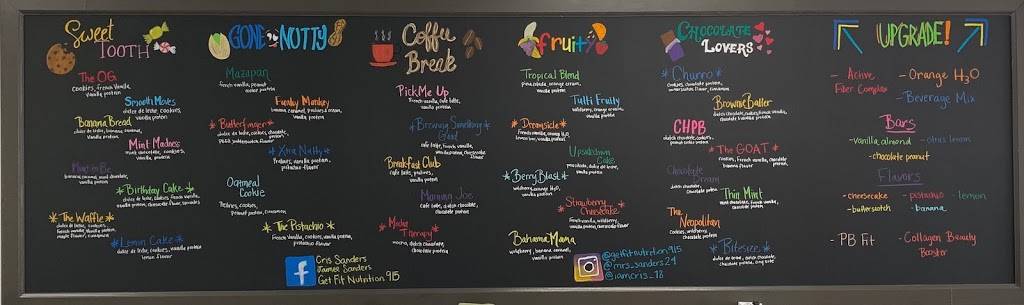 Sweet
TOOTH
The OG
cookies, french vanilla,
vanilla protein
Smooth Moves
dulce de leche, cookies,
vanilla protein
Banana Bread
dulce de leche, banana caramel,
vanilla protein
Mint Madness
mint chocolate, cookies,
vanilla protein
banana caramel, mint chocolate,
vanilla protein
*Birthday Cake*
dulce de leche, cookies, french vanilla,
vanilla protein, cheesecake flavor, sprinkles
*The Waffle*
dulce de leche,
cookies, french vanilla,
vanilla protein,
maple flavor, cinnamon
*Lemon Cake*
dulce de leche, cookies, vanilla protein
lemon flavor
GONE NUTTY
Mazapan
french vanilla, peanut
protein
Funky Monkey
banana caramel,
vanilla protein
*Butterfinger*
dulce de leche, cookies,
*Xtra Nutty*
pralines, vanilla protein,
pistachio flavor
Oatmeal
Cookie
Pralines, cookies,
peanut protein, cinnamon
*The Pistachio*
french vanilla, cookies, vanilla protein,
pistachio flavor
Cris Sanders
Jaimee Sanders
Get Fit Nutrition 915
Coffee
Break
Pick Me Up
french vanilla, cafe latte,
vanilla protein
Brewing Something
Good
cafe latte, french vanilla,
vanilla protein, cheesecake
flavor
Breakfast Club
cafe latte, pralines,
vanilla protein
Morning Joe
cafe latte, dutch chocolate,
chocolate protein
*Mocha
Therapy*
mocha, dutch chocolate,
chocolate protein
fruity
Tropical Blend
pina colada, orange cream,
vanilla protein
Tutti Fruity
wildberry, orange cream,
vanilla protein
*Dreamsicle*
french vanilla, orange H3O,
vanilla protein
Upsidedown
Cake
pina colada, dulce de leche,
vanilla protein
*BerryBlast*
wildberry, orange H3O,
vanilla protein
*Strawberry
Cheesecake*
french vanilla, wildberry,
vanilla protein, cheesecake
flavor
Bahama Mama
wildberry, banana caramel,
vanilla protein
@getfitnutrition915
@mrs_sanders24
@iamcris_18
CHOCOLATE
LOVERS
*Churro*
cookies, chocolate protein,
butterscotch flavor, cinnamon
Brownie Batter
dutch chocolate, cookies,
chocolate protein
CHPB
dutch chocolate,
peanut protein
*The GOAT*
cookies, french vanilla, chocolate
banana flavor
Chocolate
Dream
dutch chocolate,
chocolate protein
Thin Mint
mint chocolate, french vanilla,
chocolate protein
The
Neopolitan
cookies, wildberry,
chocolate protein
*Bitesize*
dulce de leche, dutch chocolate,
chocolate protein
UPGRADE!
- Active
Fiber Complex
- Orange H3O
- Beverage Mix
Bars
- vanilla almond - citrus lemon
- chocolate peanut
Flavors
- cheesecake - pistachio - lemon
- butterscotch - banana
- PB Fit
- Collagen Beauty
Booster